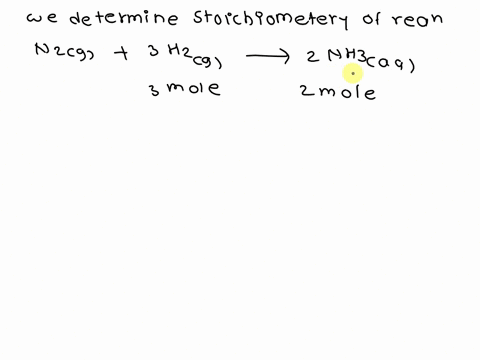 we determine stoichiometery of reon
N2(g) + 3 H2(g) ⟶ 2 NH3(aq)
3 mole 2 mole